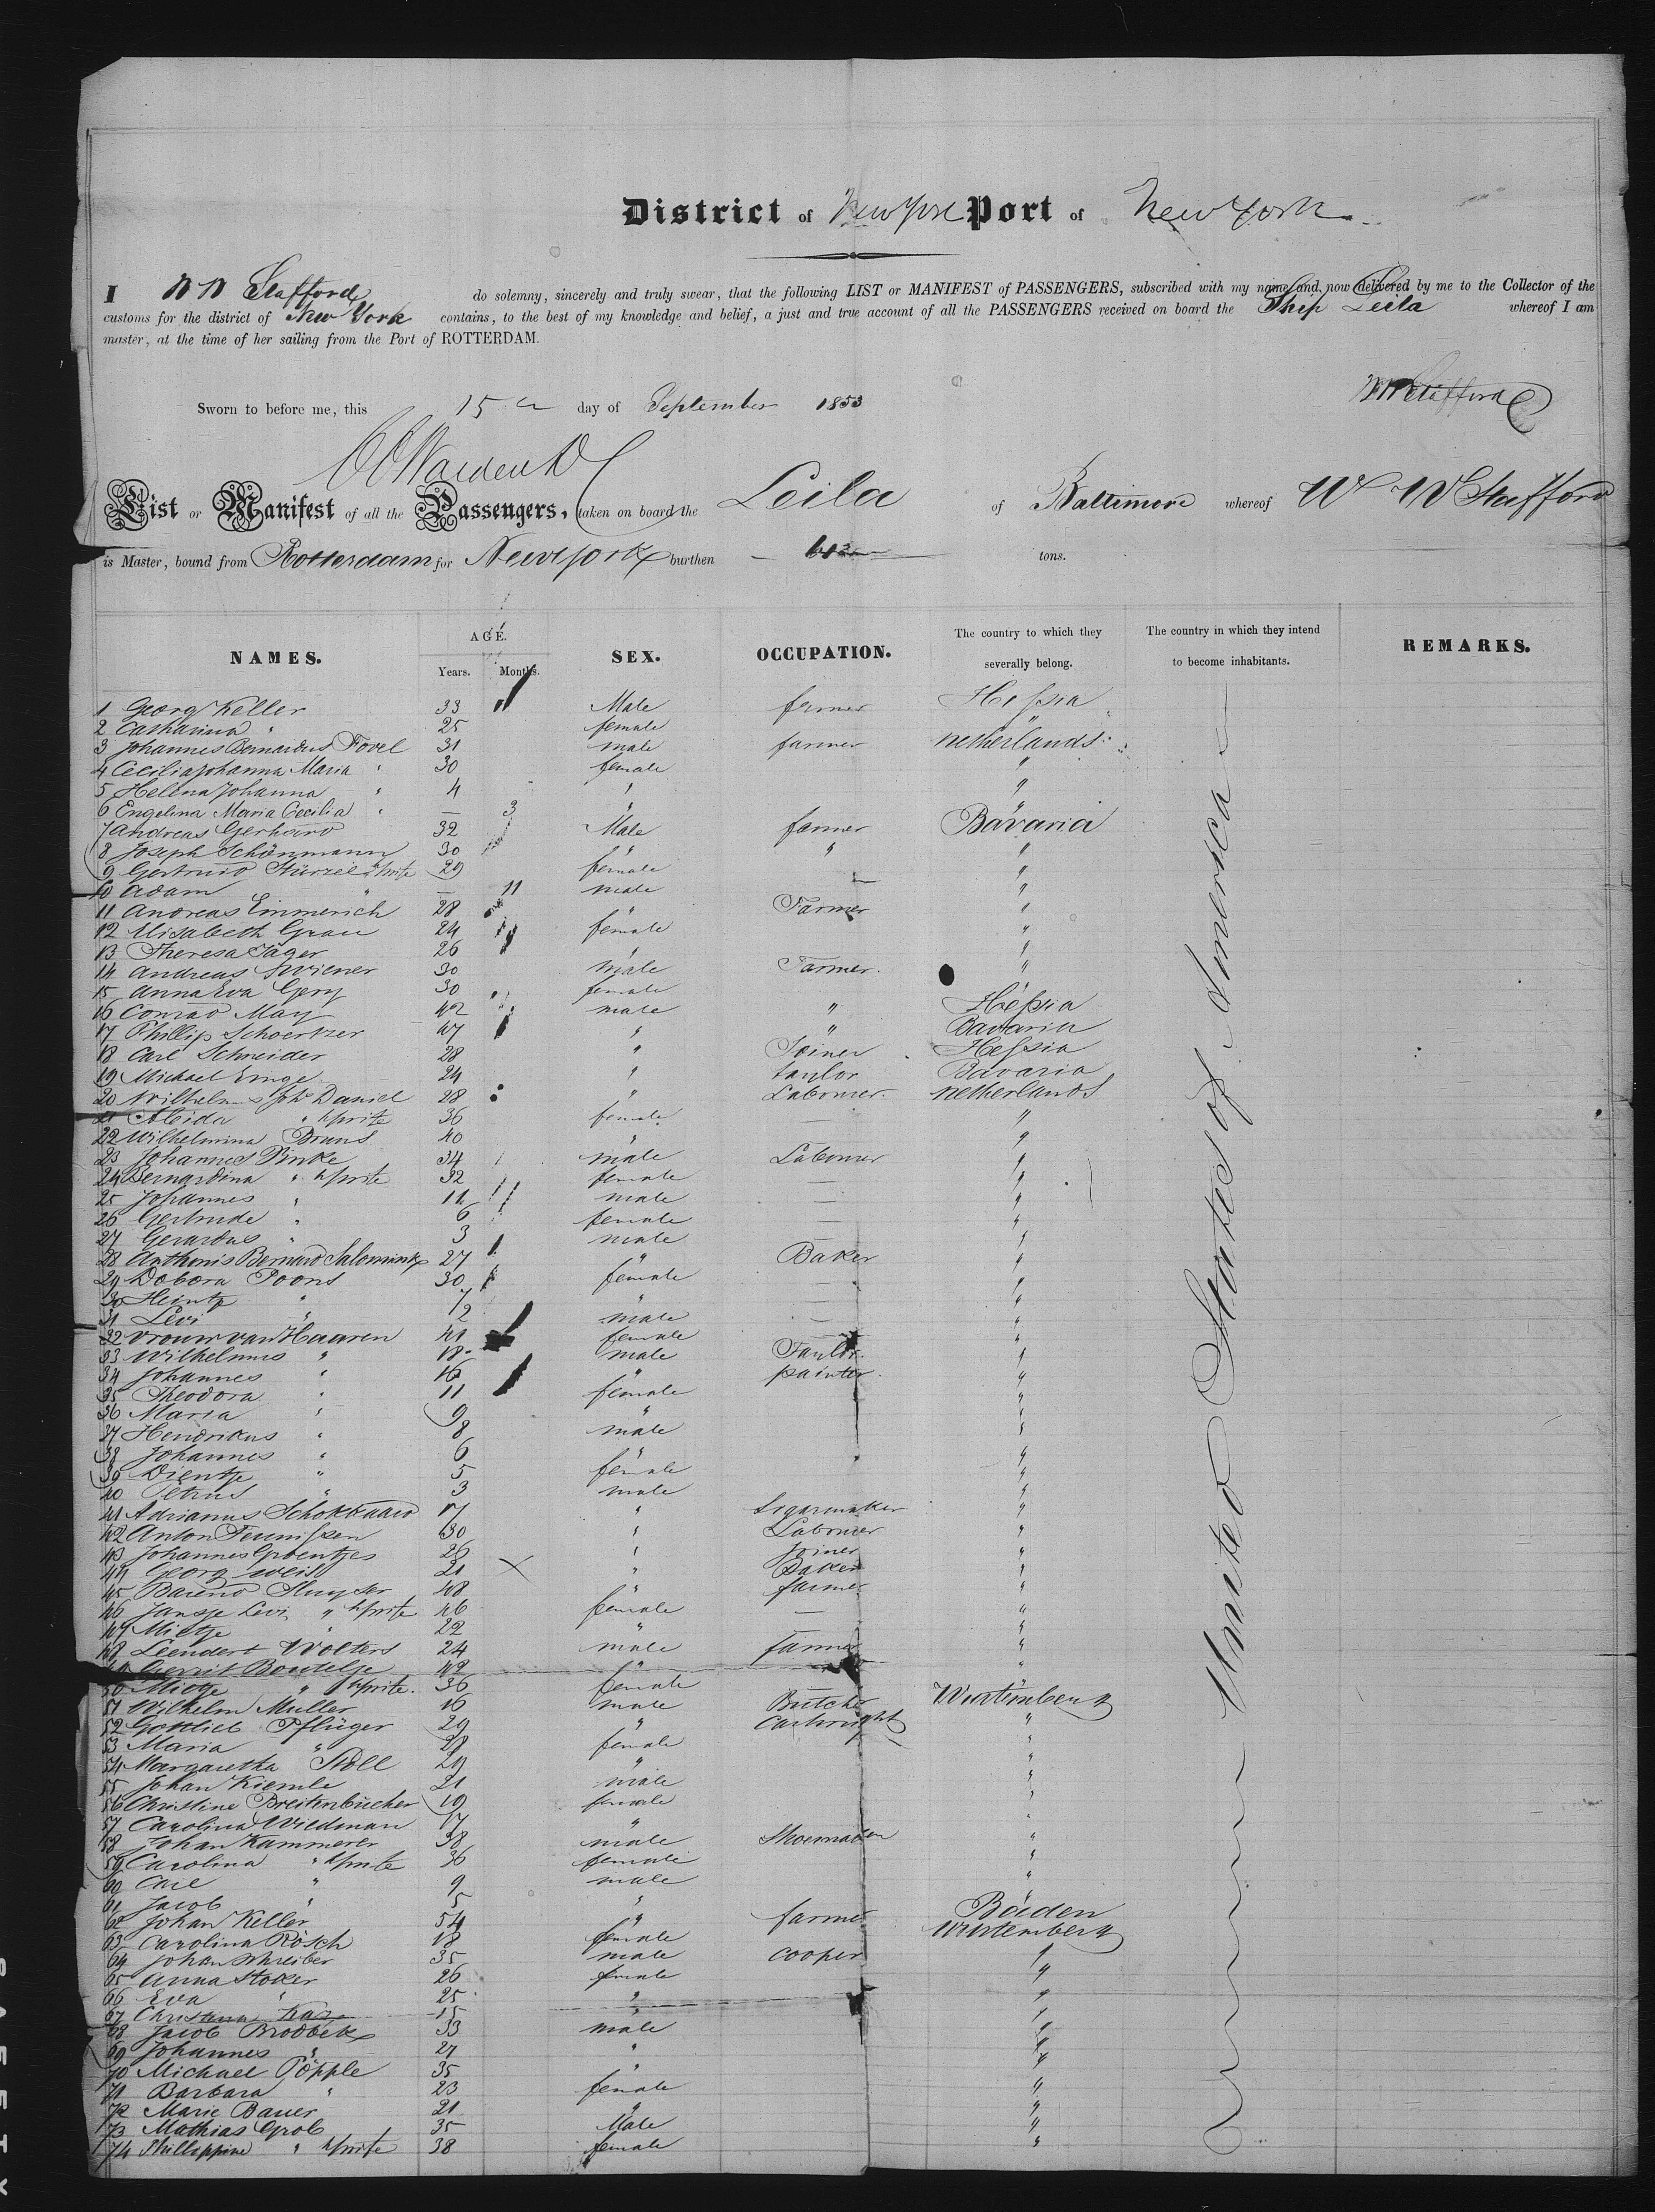 District of New York Port of New York
I W W Stafford do solemny, sincerely and truly swear, that the following LIST or MANIFEST of PASSENGERS, subscribed with my name and now delivered by me to the Collector of the
customs for the district of New York contains, to the best of my knowledge and belief, a just and true account of all the PASSENGERS received on board the Ship Leila whereof I am
master, at the time of her sailing from the Port of ROTTERDAM.
W W Stafford
Sworn to before me, this 15 day of September 1853
List or Manifest of all the Passengers, taken on board the Leila of Baltimore whereof W W Stafford
is Master, bound from Rotterdam for New York burthen tons.
NAMES. AGE. Years. Months. SEX. OCCUPATION. The country to which they severally belong. The country in which they intend to become inhabitants. REMARKS.
United States of America
1 Georg Keller 33 " Male farmer Hessia
2 Catharina " 25 female "
3 Johannes Bernardus Fovel 31 male farmer netherlands
4 Cecilia Johanna Maria " 30 female "
5 Helena Johanna " 4 " "
6 Engelina Maria Cecilia " — 3 " "
7 Andreas Gerhard 32 Male farmer Bavaria
8 Joseph Schönmann 30 " " "
9 Gertrud " wife 29 female "
10 Adam " — 11 male — "
11 Andreas Emmerich 28 " Farmer "
12 Elisabeth Grau 24 female "
13 Theresa Jäger 26 " "
14 Andreas Wiener 30 male Farmer "
15 Anna Eva Gery 30 female "
16 Conrad May 42 male " Hessia
17 Phillip Schoertzer 47 " " Bavaria
18 Carl Schneider 28 " Joiner Hessia
19 Michael Emge 24 " taylor Bavaria
20 Wilhelm Joh Daniel 28 " Labourer netherlands
21 Aleida " wife 36 female — "
22 Wilhelmina Bruns 40 " "
23 Johannes Pinke 34 male Labourer "
24 Bernardina " wife 32 female — "
25 Johannes " 11 male — "
26 Gertrude " 6 female — "
27 Gerardus " 3 male "
28 Anthonis Bernard Salomink 27 " Baker "
29 Debora Poons 30 female — "
30 Heintje " 7 " — "
31 Levi " 2 male — "
32 Vrouw van Haaren 41 female — "
33 Wilhelmus " 18 male Taylor "
34 Johannes " 16 " painter "
35 Theodora " 11 female "
36 Maria " 9 " "
37 Hendrikus " 8 male "
38 Johannes " 6 " "
39 Dientje " 5 female "
40 Petrus " 3 male "
41 Adrianus Schokkaard 17 " Sigarmaker "
42 Anton Teunissen 30 " Labourer "
43 Johannes Groentjes 26 " Joiner "
44 Georg Weis 21 X " Baker "
45 Barend Sluyser 48 " farmer "
46 Jansje Levi " wife 46 female — "
47 Mietje " 22 " "
48 Leendert Wolters 24 male farmer "
49 Gerrit Boutelje 42 " "
50 Mietje " wife 36 female — "
51 Wilhelm Muller 16 male Butcher Wurtemberg
52 Gottlieb Pflüger 29 " Cartwright "
53 Maria " 28 female "
54 Margaretha Stoll 29 " "
55 Johan Kiemle 21 male "
56 Christine Breitenbücher 19 female "
57 Carolina Wiedman 17 " "
58 Johan Kammerer 38 male Shoemaker "
59 Carolina " wife 36 female "
60 Carl " 9 male "
61 Jacob " 5 " "
62 Johan Keller 54 " farmer Baden
63 Carolina Rösch 18 female Wurtemberg
64 Johan Schreiber 35 male cooper "
65 Anna Stoker 26 female "
66 Eva " 25 " "
67 Christina 15 " "
68 Jacob Brodbek 33 male "
69 Johannes " 27 " "
70 Michael Pöpple 35 " "
71 Barbara " 23 female "
72 Marie Bauer 21 " "
73 Mathias Grob 35 Male "
74 Phillippine " wife 38 female "